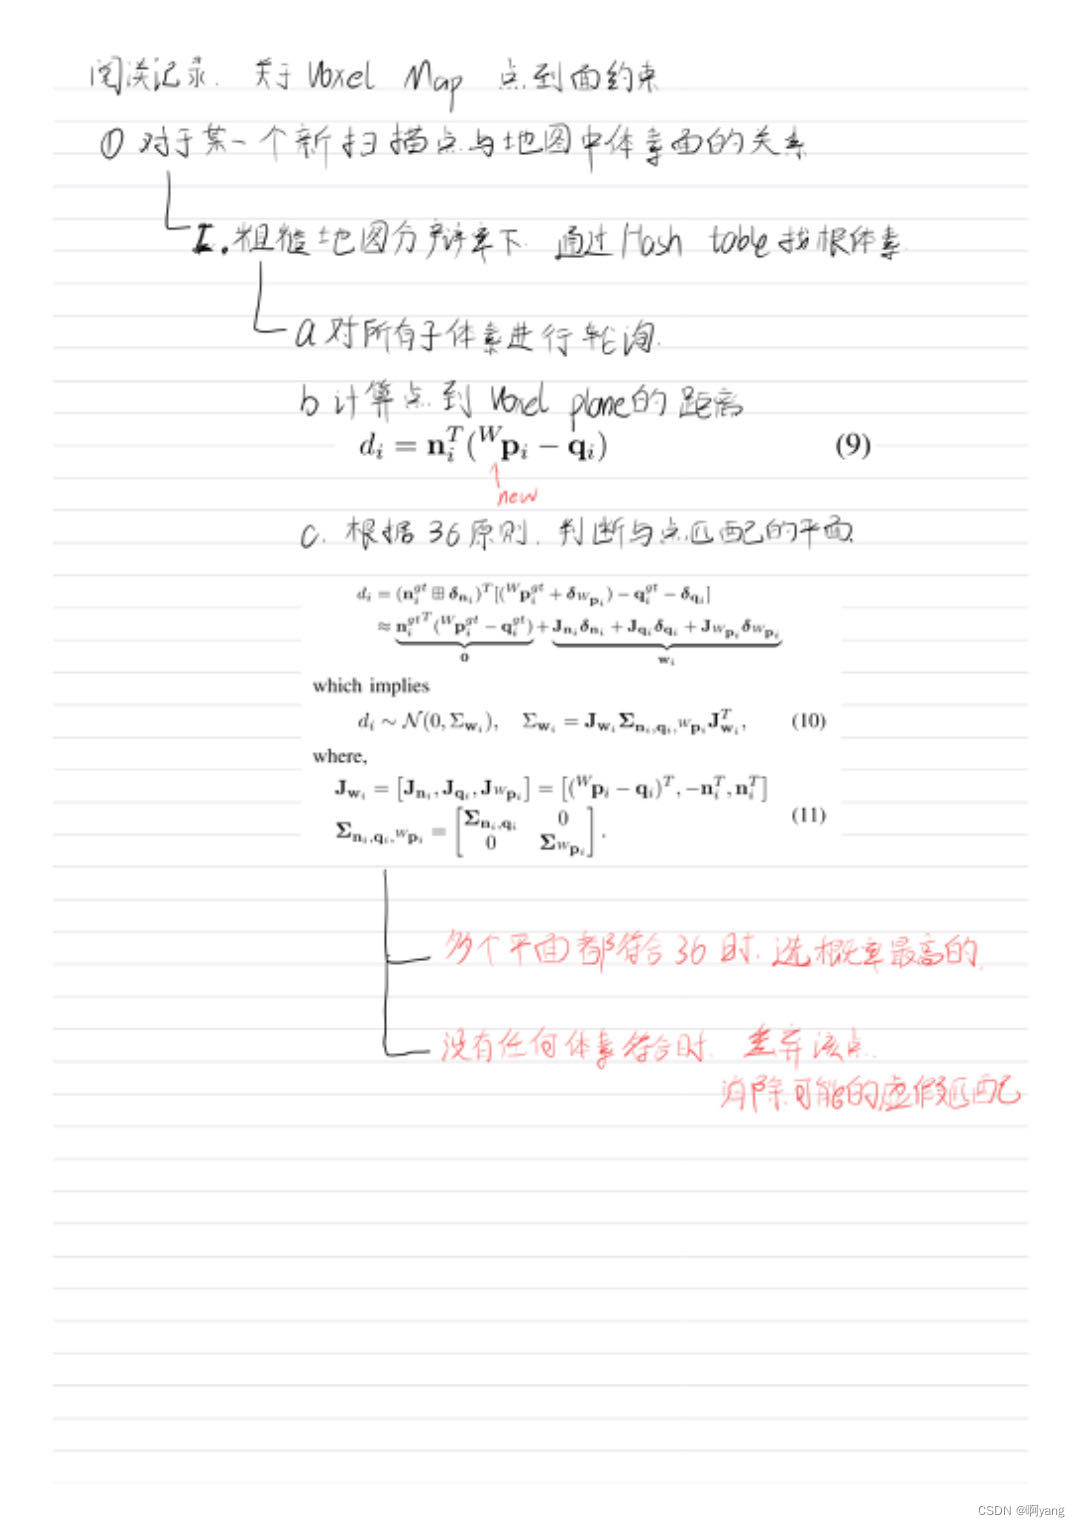 阅读记录. 关于 Voxel Map 点到面约束
① 对于某一个新扫描点与地图中体素面的关系
I. 粗糙地图分辨率下. 通过Hash table 找根体素.
a 对所有子体素进行轮询.
b 计算点到 Voxel plane的距离
d_i = n_i^T(^W p_i − q_i) (9)
↑
new
c. 根据 3σ原则. 判断与点匹配的平面.
d_i = (n_i^{gt} ⊞ δ_{n_i})^T[(^W p_i^{gt} + δ_{^W p_i}) − q_i^{gt} − δ_{q_i}]
≈ n_i^{gt T}(^W p_i^{gt} − q_i^{gt}) + J_{n_i}δ_{n_i} + J_{q_i}δ_{q_i} + J_{^W p_i}δ_{^W p_i}
0 w_i
which implies
d_i ∼ N(0, Σ_{w_i}), Σ_{w_i} = J_{w_i}Σ_{n_i,q_i,^W p_i}J_{w_i}^T, (10)
where,
J_{w_i} = [J_{n_i}, J_{q_i}, J_{^W p_i}] = [(^W p_i − q_i)^T, −n_i^T, n_i^T]
(11)
Σ_{n_i,q_i,^W p_i} = [Σ_{n_i,q_i} 0
0 Σ_{^W p_i}].
多个平面都符合 3σ 时. 选概率最高的.
没有任何体素符合时. 丢弃该点.
消除可能的虚假匹配
CSDN @啊yang